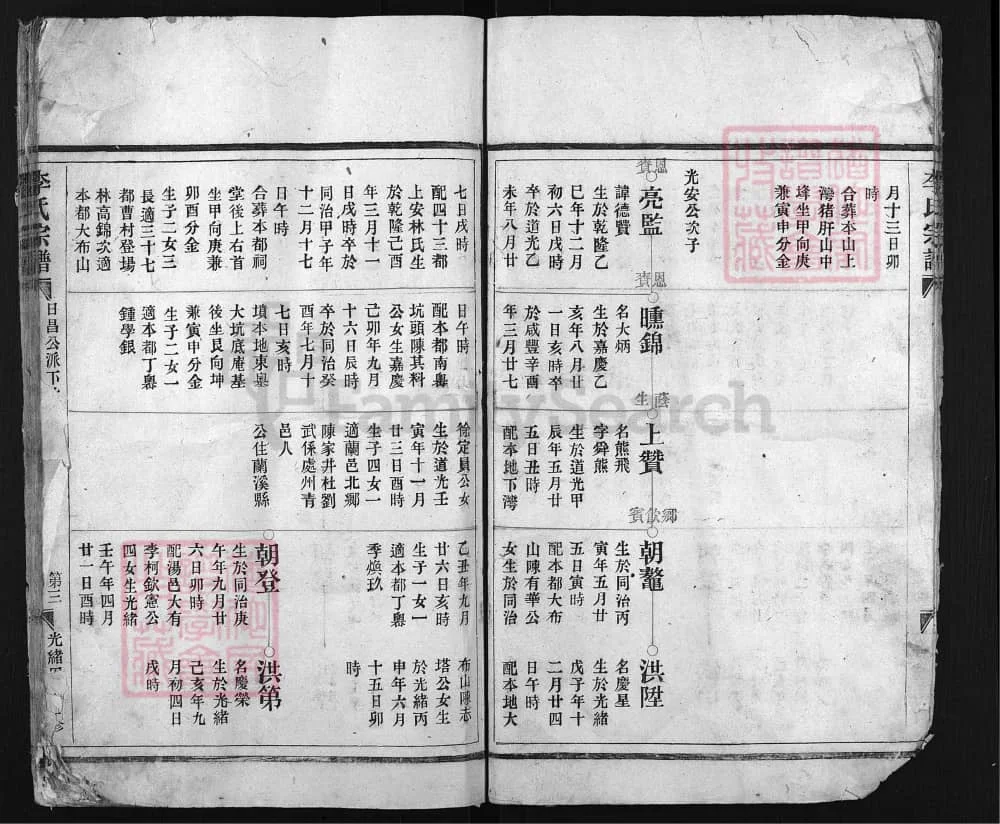 李氏宗譜
月十三日卯
時
合葬本山上
灣猪肝山中
埄坐甲向庚
兼寅申分金
光安公次子
恩賚
亮監
諱德贒
生於乾隆乙
巳年十二月
初六日戌時
卒於道光乙
未年八月廿
七日戌時
配四十三都
上安林氏生
於乾隆己酉
年三月十一
日戌時卒於
同治甲子年
十二月十七
日午時
合葬本都祠
堂後上右首
坐甲向庚兼
卯酉分金
生子二女三
長適三十七
都曹村登場
林高錦次適
本都大布山
恩賚
曛錦
名大炳
生於嘉慶乙
亥年八月廿
一日亥時卒
於咸豐辛酉
年三月廿七
日午時
配本都南㠠
坑頭陳其料
公女生嘉慶
己卯年九月
十六日辰時
卒於同治癸
酉年七月十
七日亥時
墳本地東㠠
大坑底庵基
後坐艮向坤
兼寅申分金
生子二女一
適本都丁㠠
鍾學銀
蔭生
上贊
名熊飛
字舜熊
生於道光甲
辰年五月廿
五日丑時
配本地下灣
徐定員公女
生於道光壬
寅年十一月
廿三日酉時
生子四女一
適蘭邑北鄉
陳家井杜劉
武係處州青
邑人
公住蘭溪縣
鄉飲賓
朝鼇
生於同治丙
寅年五月廿
五日寅時
配本都大布
山陳有華公
女生於同治
乙丑年九月
廿六日亥時
生子一女一
適本都丁㠠
季煥玖
朝登
生於同治庚
午年九月廿
六日卯時
配湯邑大有
李柯欽憲公
四女生光緒
壬午年四月
廿一日酉時
洪陞
名慶星
生於光緒
戊子年十
二月廿四
日午時
配本地大
布山陳志
塔公女生
於光緒丙
申年六月
十五日卯
時
洪第
名慶榮
生於光緒
己亥年九
月初四日
戌時
李氏宗譜
日昌公派下
第三
光緒